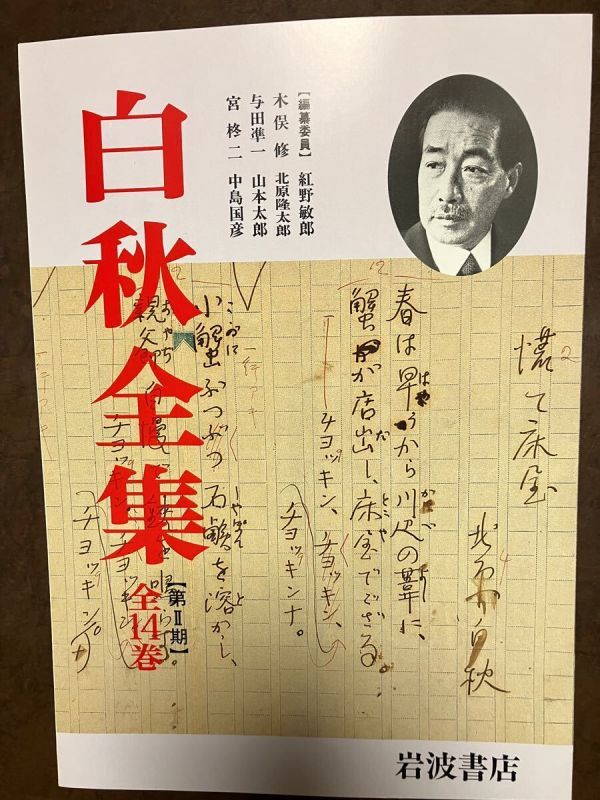 白秋全集
【第Ⅱ期】
全14巻
【編纂委員】 紅野敏郎
木俣修 北原隆太郎
与田凖一 山本太郎
宮柊二 中島国彦
慌て床屋
北原白秋
春は早うから川辺の葦に、
はや かはべ よし
蟹が店出し、床屋でござる。
だ とこや
チヨッキン、チヨッキン、
チヨッキンナ。
小蟹ぶつぶつ石鹸を溶かし、
こがに しやぼん と
親父自慢で
おやぢ
チヨッキン、
チヨッキンナ
岩波書店